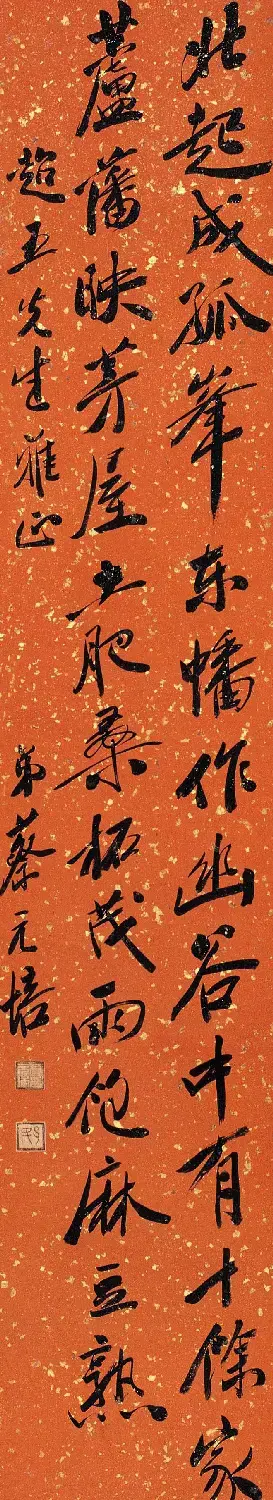 北起成孤峯東蟠作幽谷中有十餘家
蘆藩映茅屋土肥桑柘茂雨飽麻豆熟
超五先生雅正
弟蔡元培